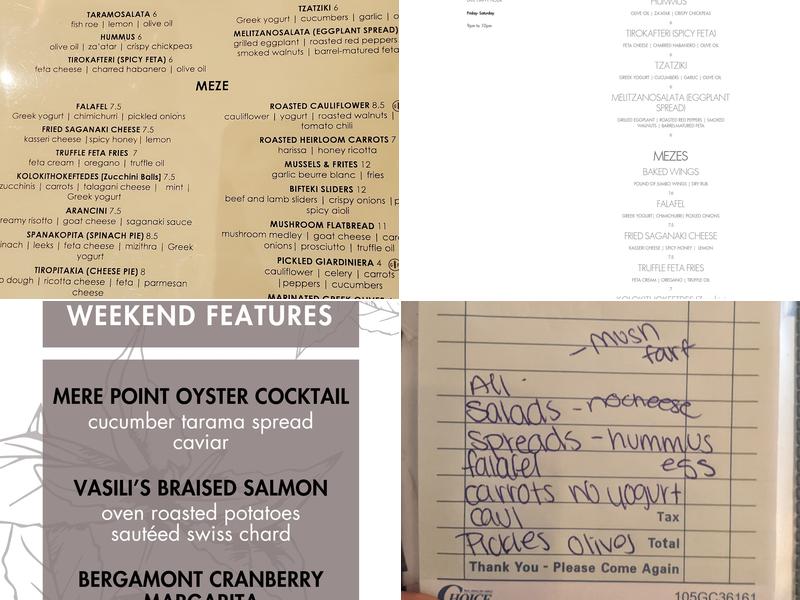 TARAMOSALATA 6
fish roe | lemon | olive oil
HUMMUS 6
olive oil | za'atar | crispy chickpeas
TIROKAFTERI (SPICY FETA) 6
feta cheese | charred habanero | olive oil
TZATZIKI 6
Greek yogurt | cucumbers | garlic |
MELITZANOSALATA (EGGPLANT SPREAD)
grilled eggplant | roasted red peppers
smoked walnuts | barrel-matured feta
MEZE
FALAFEL 7.5
Greek yogurt | chimichurri | pickled onions
FRIED SAGANAKI CHEESE 7.5
kasseri cheese |spicy honey | lemon
TRUFFLE FETA FRIES 7
feta cream | oregano | truffle oil
KOLOKITHOKEFTEDES [Zucchini Balls] 7.5
zucchinis | carrots | talagani cheese | mint |
Greek yogurt
ARANCINI 7.5
creamy risotto | goat cheese | saganaki sauce
SPANAKOPITA (SPINACH PIE) 8.5
inach | leeks | feta cheese | mizithra | Greek
yogurt
TIROPITAKIA (CHEESE PIE) 8
o dough | ricotta cheese | feta | parmesan
cheese
ROASTED CAULIFLOWER 8.5
cauliflower | yogurt | roasted walnuts |
tomato chili
ROASTED HEIRLOOM CARROTS 7
harissa | honey ricotta
MUSSELS & FRITES 12
garlic beurre blanc | fries
BIFTEKI SLIDERS 12
beef and lamb sliders | crispy onions |
spicy aioli
MUSHROOM FLATBREAD 11
mushroom medley | goat cheese | car
onions| prosciutto | truffle oil
PICKLED GIARDINIERA 4
cauliflower | celery | carrots
|peppers | cucumbers
MARINATED GREEK OLIVES
Friday- Saturday
9pm to 10pm
HUMMUS
OLIVE OIL | ZA'ATAR | CRISPY CHICKPEAS
6
TIROKAFTERI (SPICY FETA)
FETA CHEESE | CHARRED HABANERO | OLIVE OIL
6
TZATZIKI
GREEK YOGURT | CUCUMBERS | GARLIC | OLIVE OIL
6
MELITZANOSALATA (EGGPLANT
SPREAD)
GRILLED EGGPLANT | ROASTED RED PEPPERS | SMOKED
WALNUTS | BARREL-MATURED FETA
MEZES
BAKED WINGS
POUND OF JUMBO WINGS | DRY RUB
16
FALAFEL
GREEK YOGURT| CHIMICHURRI| PICKLED ONIONS
7.5
FRIED SAGANAKI CHEESE
KASSERI CHEESE | SPICY HONEY | LEMON
7.5
TRUFFLE FETA FRIES
FETA CREAM | OREGANO | TRUFFLE OIL
7
WEEKEND FEATURES
MERE POINT OYSTER COCKTAIL
cucumber tarama spread
caviar
VASILI'S BRAISED SALMON
oven roasted potatoes
sautéed swiss chard
BERGAMONT CRANBERRY
MARGARITA
- mush
fart
All
Salads - nocheese
spreads - hummus
falafel egg
carrots no yogurt
caul Tax
Pickles olives Total
Thank You - Please Come Again
CHOICE 105GC36161